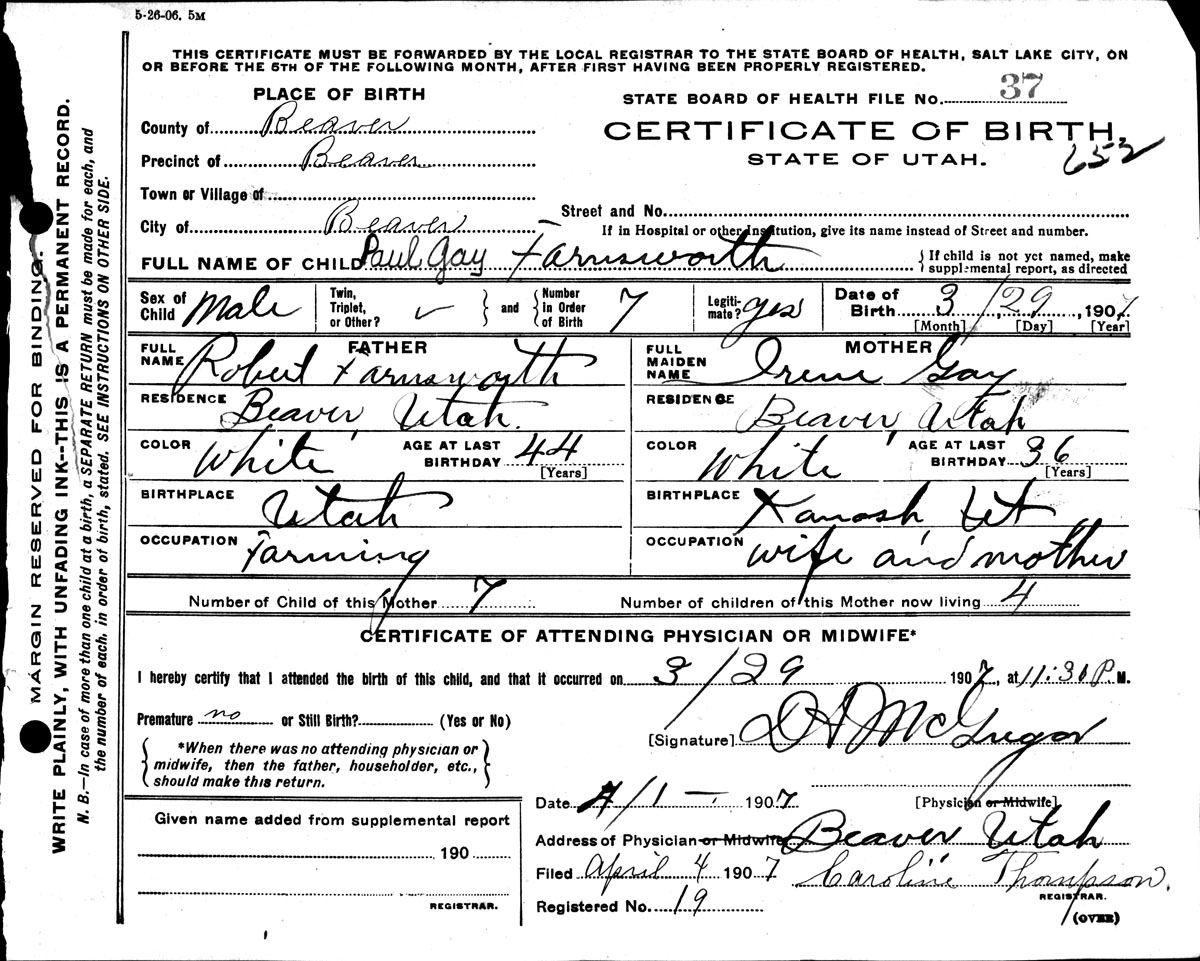 5-26-06. 5M
THIS CERTIFICATE MUST BE FORWARDED BY THE LOCAL REGISTRAR TO THE STATE BOARD OF HEALTH, SALT LAKE CITY, ON
OR BEFORE THE 5TH OF THE FOLLOWING MONTH, AFTER FIRST HAVING BEEN PROPERLY REGISTERED.
PLACE OF BIRTH
STATE BOARD OF HEALTH FILE No. 37
County of Beaver
CERTIFICATE OF BIRTH,
Precinct of Beaver
STATE OF UTAH.
652
Town or Village of
Street and No.
City of Beaver
If in Hospital or other Institution, give its name instead of Street and number.
FULL NAME OF CHILD Paul Gay Farnsworth { If child is not yet named, make supplemental report, as directed
Sex of Child Male Twin, Triplet, or Other? ✓ } and { Number in Order of Birth 7 Legitimate? yes Date of Birth 3/29, 1907
[Month] [Day] [Year]
FATHER
FULL NAME Robert Farnsworth
RESIDENCE Beaver, Utah.
COLOR White AGE AT LAST BIRTHDAY 44 [Years]
BIRTHPLACE Utah
OCCUPATION Farming
MOTHER
FULL MAIDEN NAME Irene Gay
RESIDENCE Beaver, Utah
COLOR White AGE AT LAST BIRTHDAY 36 [Years]
BIRTHPLACE Kanosh, Ut
OCCUPATION wife and mother
Number of Child of this Mother 7 Number of children of this Mother now living 4
CERTIFICATE OF ATTENDING PHYSICIAN OR MIDWIFE*
I hereby certify that I attended the birth of this child, and that it occurred on 3/29 1907, at 11:30 P.M.
Premature no or Still Birth? (Yes or No)
*When there was no attending physician or
midwife, then the father, householder, etc.,
should make this return.
[Signature] D A McGregor
Date 4/1 - 1907 [Physician or Midwife]
Address of Physician or Midwife Beaver Utah
Filed April 4 1907 Caroline Thompson.
REGISTRAR.
Registered No. 19
(OVER)
Given name added from supplemental report
190
REGISTRAR.
MARGIN RESERVED FOR BINDING.
WRITE PLAINLY, WITH UNFADING INK--THIS IS A PERMANENT RECORD.
N. B.—In case of more than one child at a birth, a SEPARATE RETURN must be made for each, and
the number of each, in order of birth, stated. SEE INSTRUCTIONS ON OTHER SIDE.